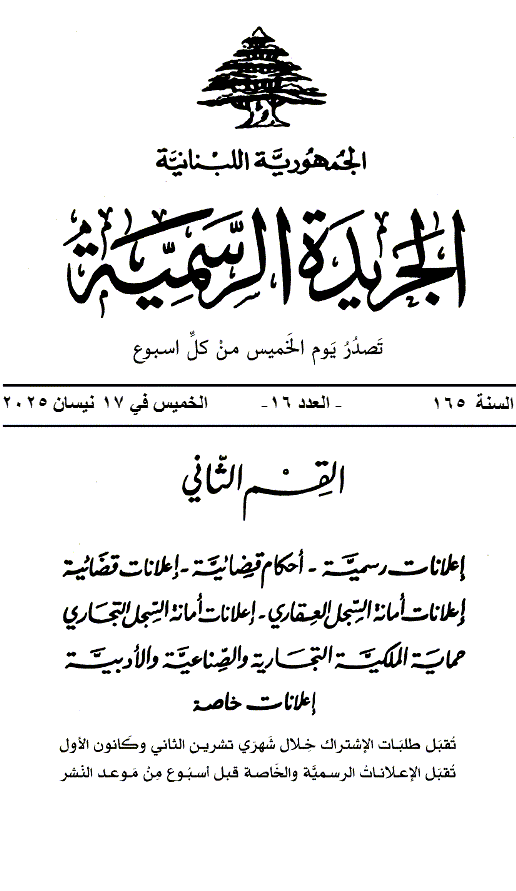 الجُمهُوريَّة اللبْنانيَّة
الجَريدَة الرسَّمِيَّة
تَصدُرُ يَوم الخَميس منْ كلِّ اسبوع
السنة ١٦٥ - العدد ١٦- الخميس في ١٧ نيسان ٢٠٢٥
القِسْم الثّاني
إعلانات رسميَّة - أحكام قضائيَّة - إعلانات قضائية
إعلانات أمانة السِّجل العِقاري - إعلانات أمانة السِّجل التجاري
حماية الملكيَّة التجارية والصِّناعيَّة والأدبيَّة
إعلانات خاصة
تُقبَل طلبَات الإشتراك خِلال شَهرَي تشرين الثاني وكَانون الأول
تُقبَل الإعلاناتُ الرسميَّة والخَاصة قبل أسبُوع مِنْ مَوعد النْشر